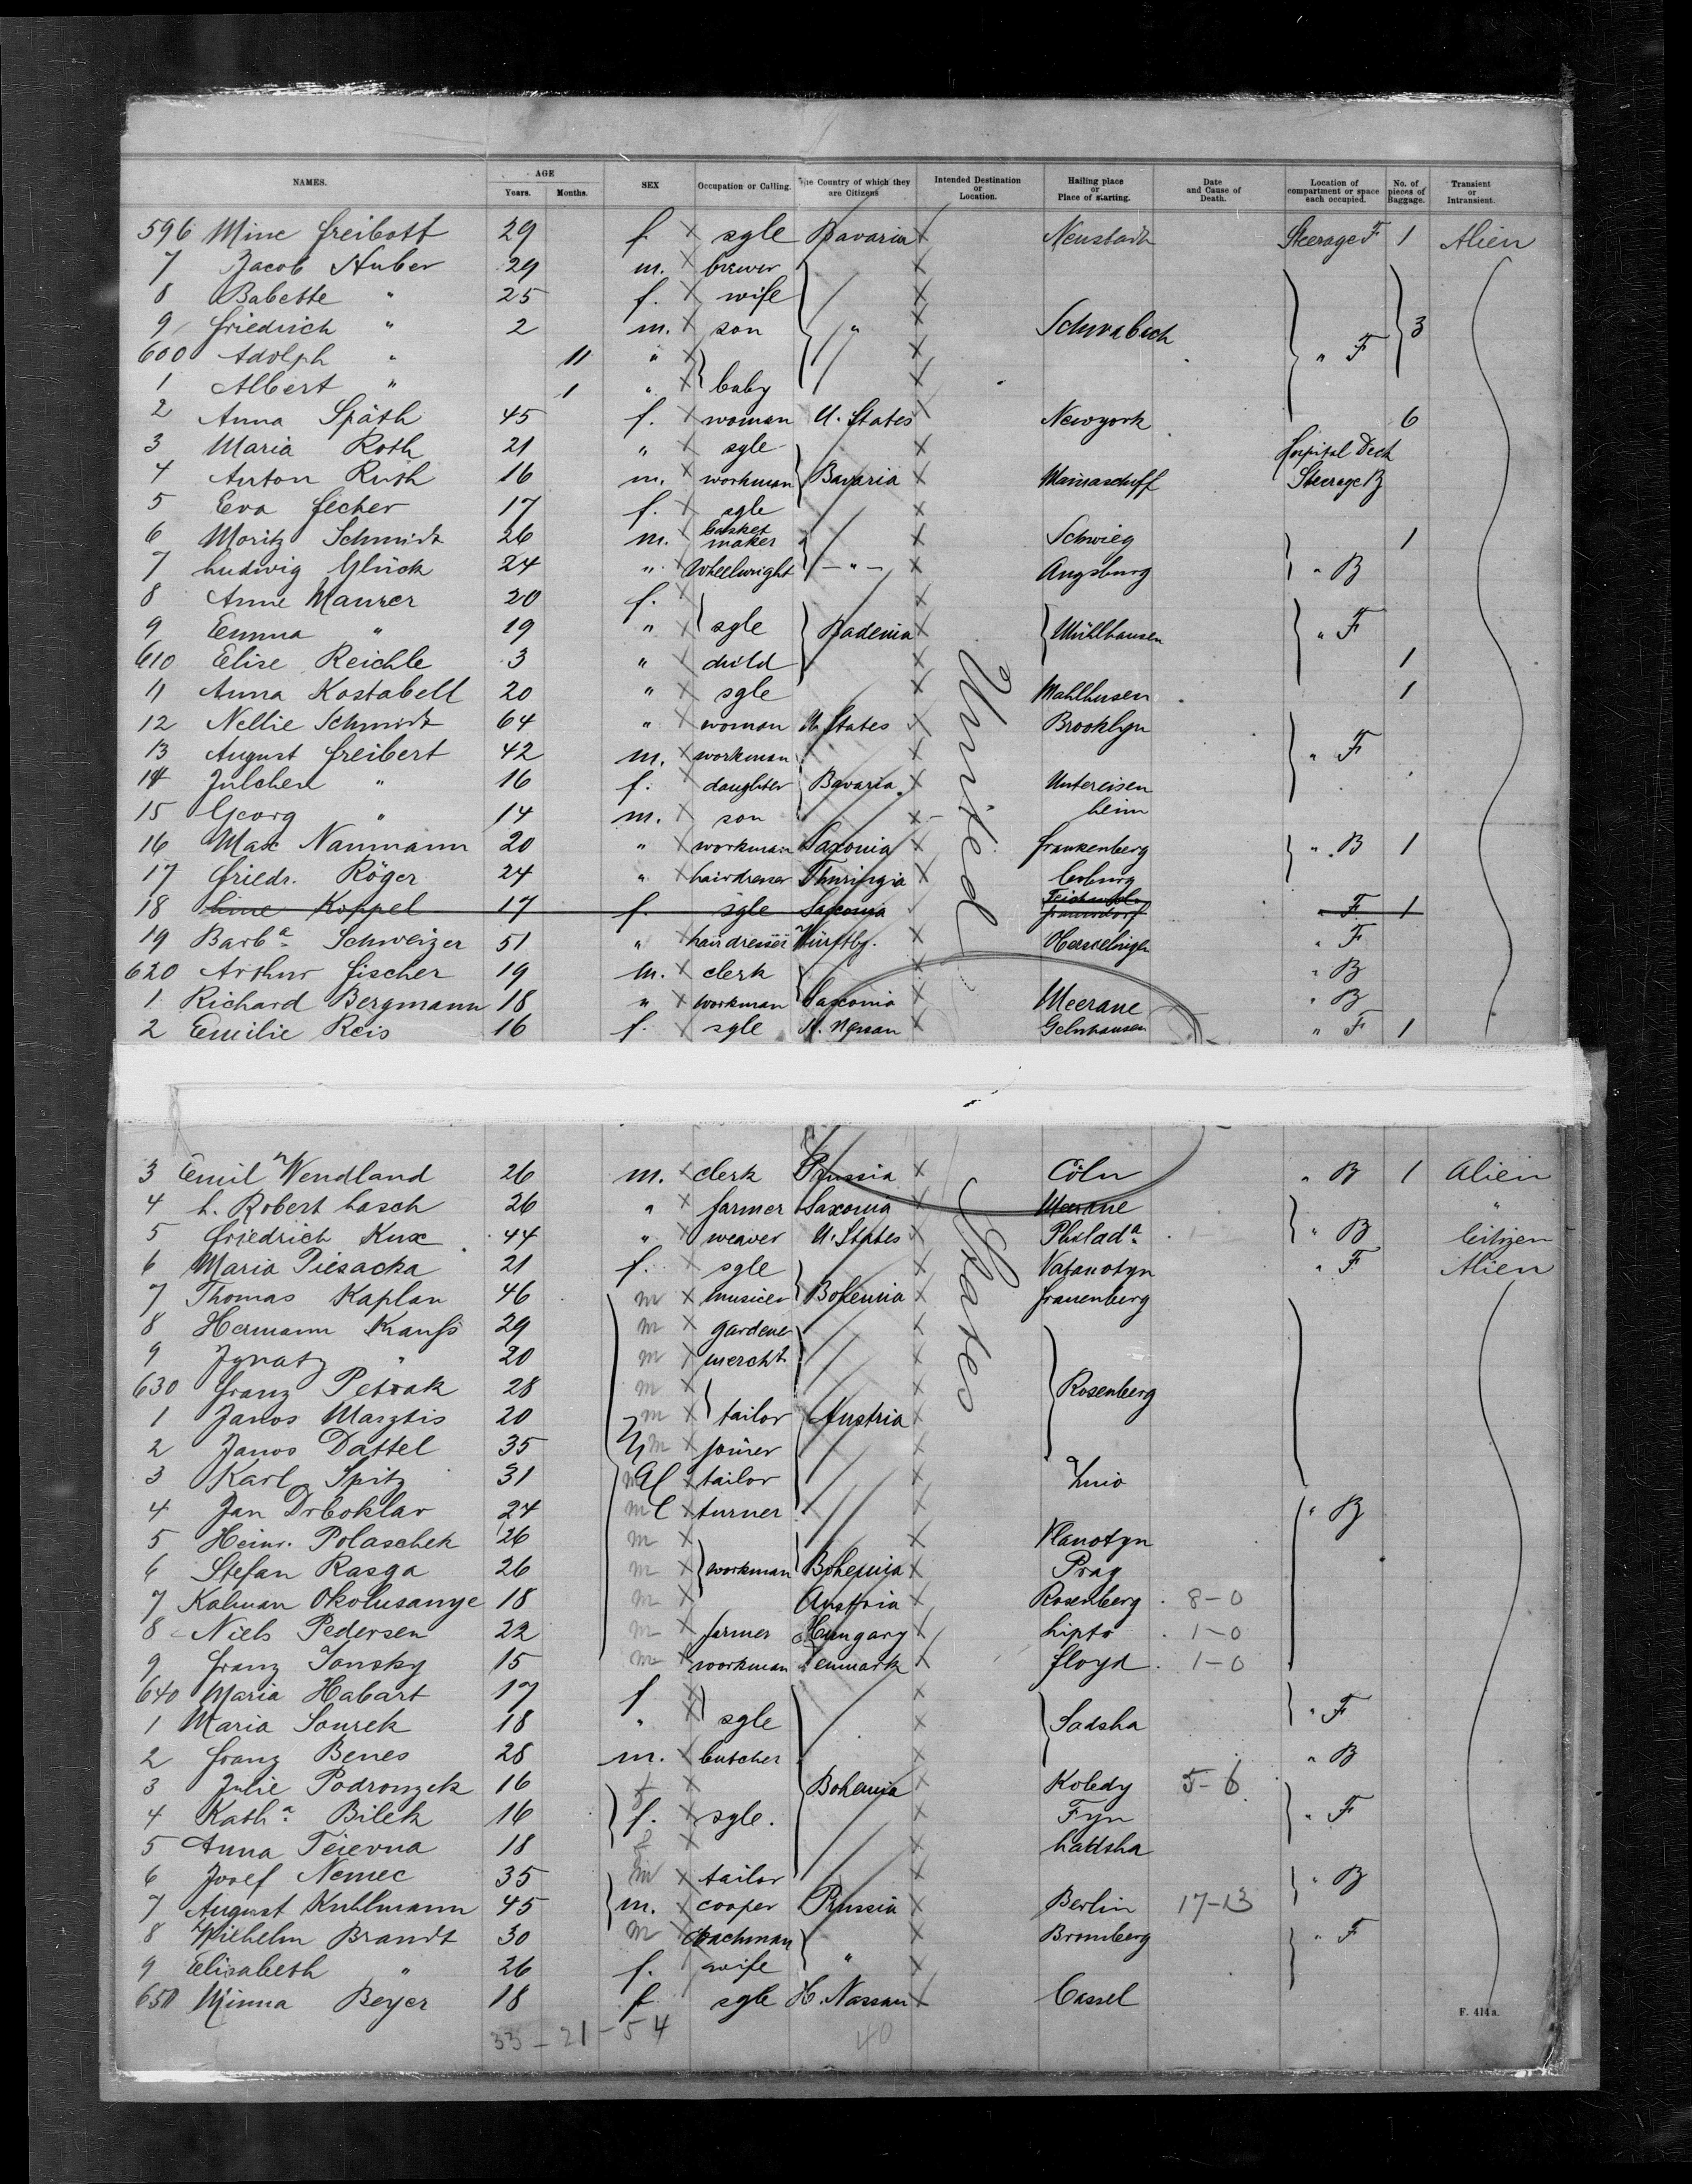 NAMES. AGE Years. Months. SEX Occupation or Calling. The Country of which they are Citizens Intended Destination or Location. Hailing place or Place of starting. Date and Cause of Death. Location of compartment or space each occupied. No. of pieces of Baggage. Transient or Intransient.
596 Mine Freibott 29 f. x sgle Bavaria x Neustadt Steerage F 1 Alien
7 Jacob Huber 29 m. x brewer x
8 Babette " 25 f. x wife x
9 Friedrich " 2 m. x son " x Schwabach 3
600 Adolph " 11 " x x " F
1 Albert " 1 " x baby x
2 Anna Späth 45 f. x woman U. States x Newyork 6
3 Maria Roth 21 " x sgle x Hospital Deck
4 Anton Rush 16 m. x workman Bavaria x Mainaschff Steerage B
5 Eva Fecher 17 f. x sgle x
6 Moritz Schmidt 26 m. x basket maker x Schwieg 1
7 Ludwig Glück 24 " x Wheelwright - " - x Augsburg " B
8 Anne Maurer 20 f. x x
9 Emma " 19 " x sgle Badenia x Mühlhausen " F
610 Elise Reichle 3 " x child x 1
11 Anna Kostabell 20 " x sgle x Mahlhusen 1
12 Nellie Schmidt 64 " x woman U. States x Brooklyn
13 August Freibert 42 m. x workman x " F
14 Julchen " 16 f. x daughter Bavaria x Untereisen
15 Georg " 14 m. x son x heim
16 Max Naumann 20 " x workman Saxonia x Frankenberg " B 1
17 Friedr. Röger 24 " x hairdresser Thuringia x Coburg
18 Line Koppel 17 f. sgle Saxonia F 1
19 Barba Schweizer 51 " x hairdresser Württbg. x " F
620 Arthur Fischer 19 m. x clerk x " B
1 Richard Bergmann 18 " x workman Saxonia x Meerane " B
2 Emilie Reis 16 f. x sgle H. Nassau x Gelnhausen " F 1
United
3 Emil Wendland 26 m. x clerk Prussia x Cöln " B 1 Alien
4 L. Robert Lasch 26 " x farmer Saxonia x Meerane "
5 Friedrich Kux 44 " x weaver U. States x Philada " B Citizen
6 Maria Piesacka 21 f. x sgle x " F Alien
7 Thomas Kaplan 46 m x musicer Bohemia x Frauenberg
8 Hermann Krauss 29 m x gardener x
9 Ignatz " 20 m x mercht x
630 Franz Petrak 28 m x x Rosenberg
1 Janos Marztis 20 m x tailor Austria x
2 Janos Dattel 35 m x joiner x
3 Karl Spitz 31 m x tailor x Znio
4 Jan Drboklav 24 m x turner x " B
5 Heinr. Polaschek 26 m x x Vlanotyn
6 Stefan Rasga 26 m x workman Bohemia x Prag
7 Kalman Okolusanye 18 m x Austria x Rosenberg 8-0
8 Niels Pedersen 22 m x farmer Hungary x Lipto 1-0
9 Franz Jonsky 15 m x workman Denmark x Floyd 1-0
640 Maria Habart 17 f x x " F
1 Maria Sourek 18 " x sgle x Sadsha
2 Franz Benes 28 m. x butcher x " B
3 Julie Podronzek 16 f x Bohemia x Koledy 5-6
4 Katha Bilek 16 f. x sgle. x Fyn " F
5 Anna Teievna 18 f x Ladsha
6 Josef Nemec 35 m x tailor x " B
7 August Kuhlmann 45 m. x cooper Prussia x Berlin 17-13
8 Wilhelm Brandt 30 m x Coachman x Bromberg " F
9 Elisabeth " 26 f. wife " x
650 Minna Beyer 18 f sgle H. Nassau x Cassel
States
F. 414 a.
33 - 21 - 54 40